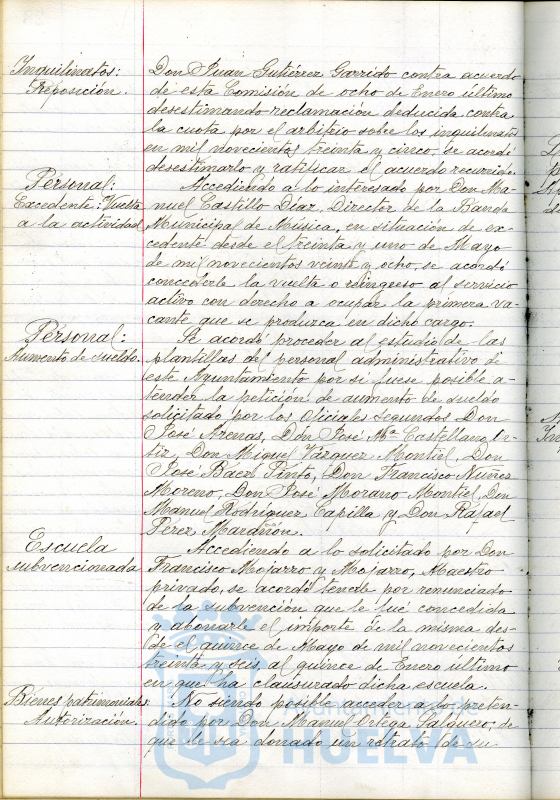 Inquilinatos:
Reposición.
Don Juan Gutiérrez Garrido contra acuerdo
de esta Comisión de ocho de Enero último
desestimando reclamación deducida contra
la cuota por el arbitrio sobre los inquilinatos
en mil novecientos treinta y cinco, se acordó
desestimarlo y ratificar el acuerdo recurrido.
Personal:
Excedente: Vuelta
a la actividad
Accediendo a lo interesado por Don Ma-
nuel Castillo Díaz, Director de la Banda
Municipal de Música, en situación de ex-
cedente desde el treinta y uno de Mayo
de mil novecientos veinte y ocho, se acordó
concederle la vuelta o reingreso al servicio
activo con derecho a ocupar la primera va-
cante que se produzca en dicho cargo.
Personal:
Aumento de sueldo.
Se acordó proceder al estudio de las
plantillas del personal administrativo de
este Ayuntamiento por si fuese posible a-
tender la petición de aumento de sueldo
solicitado por los Oficiales segundos Don
José Arenas, Don José Mª Castellano Or-
tiz, Don Miguel Vázquez Montiel, Don
José Báez Pinto, Don Francisco Núñez
Moreno, Don José Morano Montiel, Don
Manuel Rodríguez Capilla y Don Rafael
Pérez Marañón.
Escuela
subvencionada
Accediendo a lo solicitado por Don
Francisco Mojarro y Mojarro, Maestro
privado, se acordó tenerle por renunciado
de la subvención que le fué concedida
y abonarle el importe de la misma des-
de el quince de Mayo de mil novecientos
treinta y seis, al quince de Enero último
en que ha clausurado dicha escuela.
Bienes patrimoniales
Autorización.
No siendo posible acceder a lo preten-
dido por Don Manuel Ortega Salguero, de
que le sea donado un retrato de su
HUELVA